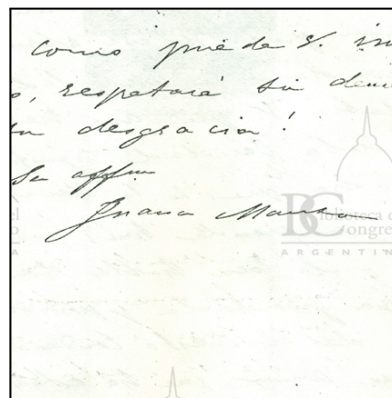 como puede V. im
o, respetará su dem
su desgracia!
Su affma
Juana Manso
BC
Biblioteca d
Congre
ARGENTIN